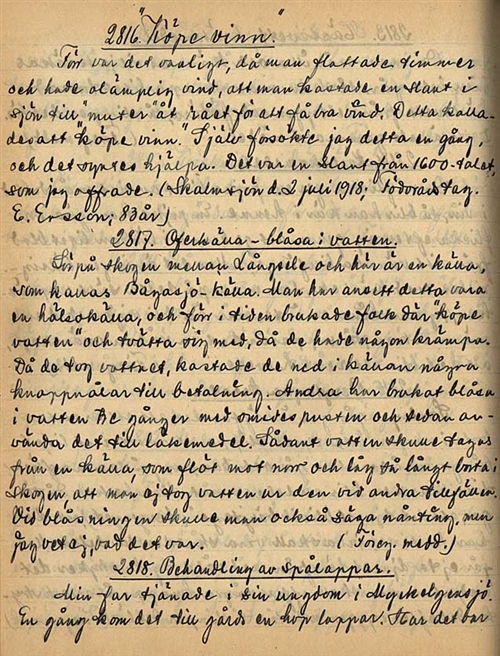 2816. "Köpe vinn."
Förr var det vanligt, då man flottade timmer
och hade olämplig vind, att man kastade en slant i
sjön till "muter åt rået för att få bra vind. Detta kalla-
des att "köpe vinn." Själv försökte jag detta en gång,
och det syntes hjälpa. Det var en slant från 1600-talet,
som jag offrade. (Skalmsjön d. 2 juli 1918; Födorådstag.
E. Ersson; 83 år)
2817. Oferkälla - blåsa i vatten.
Sörpå skogen mellan Långsele och här är en källa,
som kallas Bågasjö källa. Man har ansett detta vara
en hälsokälla, och förr i tiden brukade folk där "köpe
vatten" och tvätta sig med, då de hade någon krämpa.
Då de tog vattnet, kastade de ned i källan några
knappnålar till betalning. Andra har brukat blåsa
i vatten 3e gånger med smidespusten och sedan an-
vända det till läkemedel. Sådant vatten skulle tagas
från en källa, som flöt mot norr och låg så långt borta i
skogen, att man ej tog vatten ur den vid andra tillfällen.
Vid blåsningen skulle man också säga nånting, men
jag vet ej, vad det var. (Föreg. medd.)
2818. Behandling av spålappar.
Min far tjänade i sin ungdom i Myckelgensjö.
En gång kom det till gårds en hop lappar. Har det var